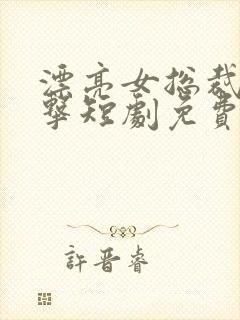 漂亮女总裁
擊短劇免費
許晋睿